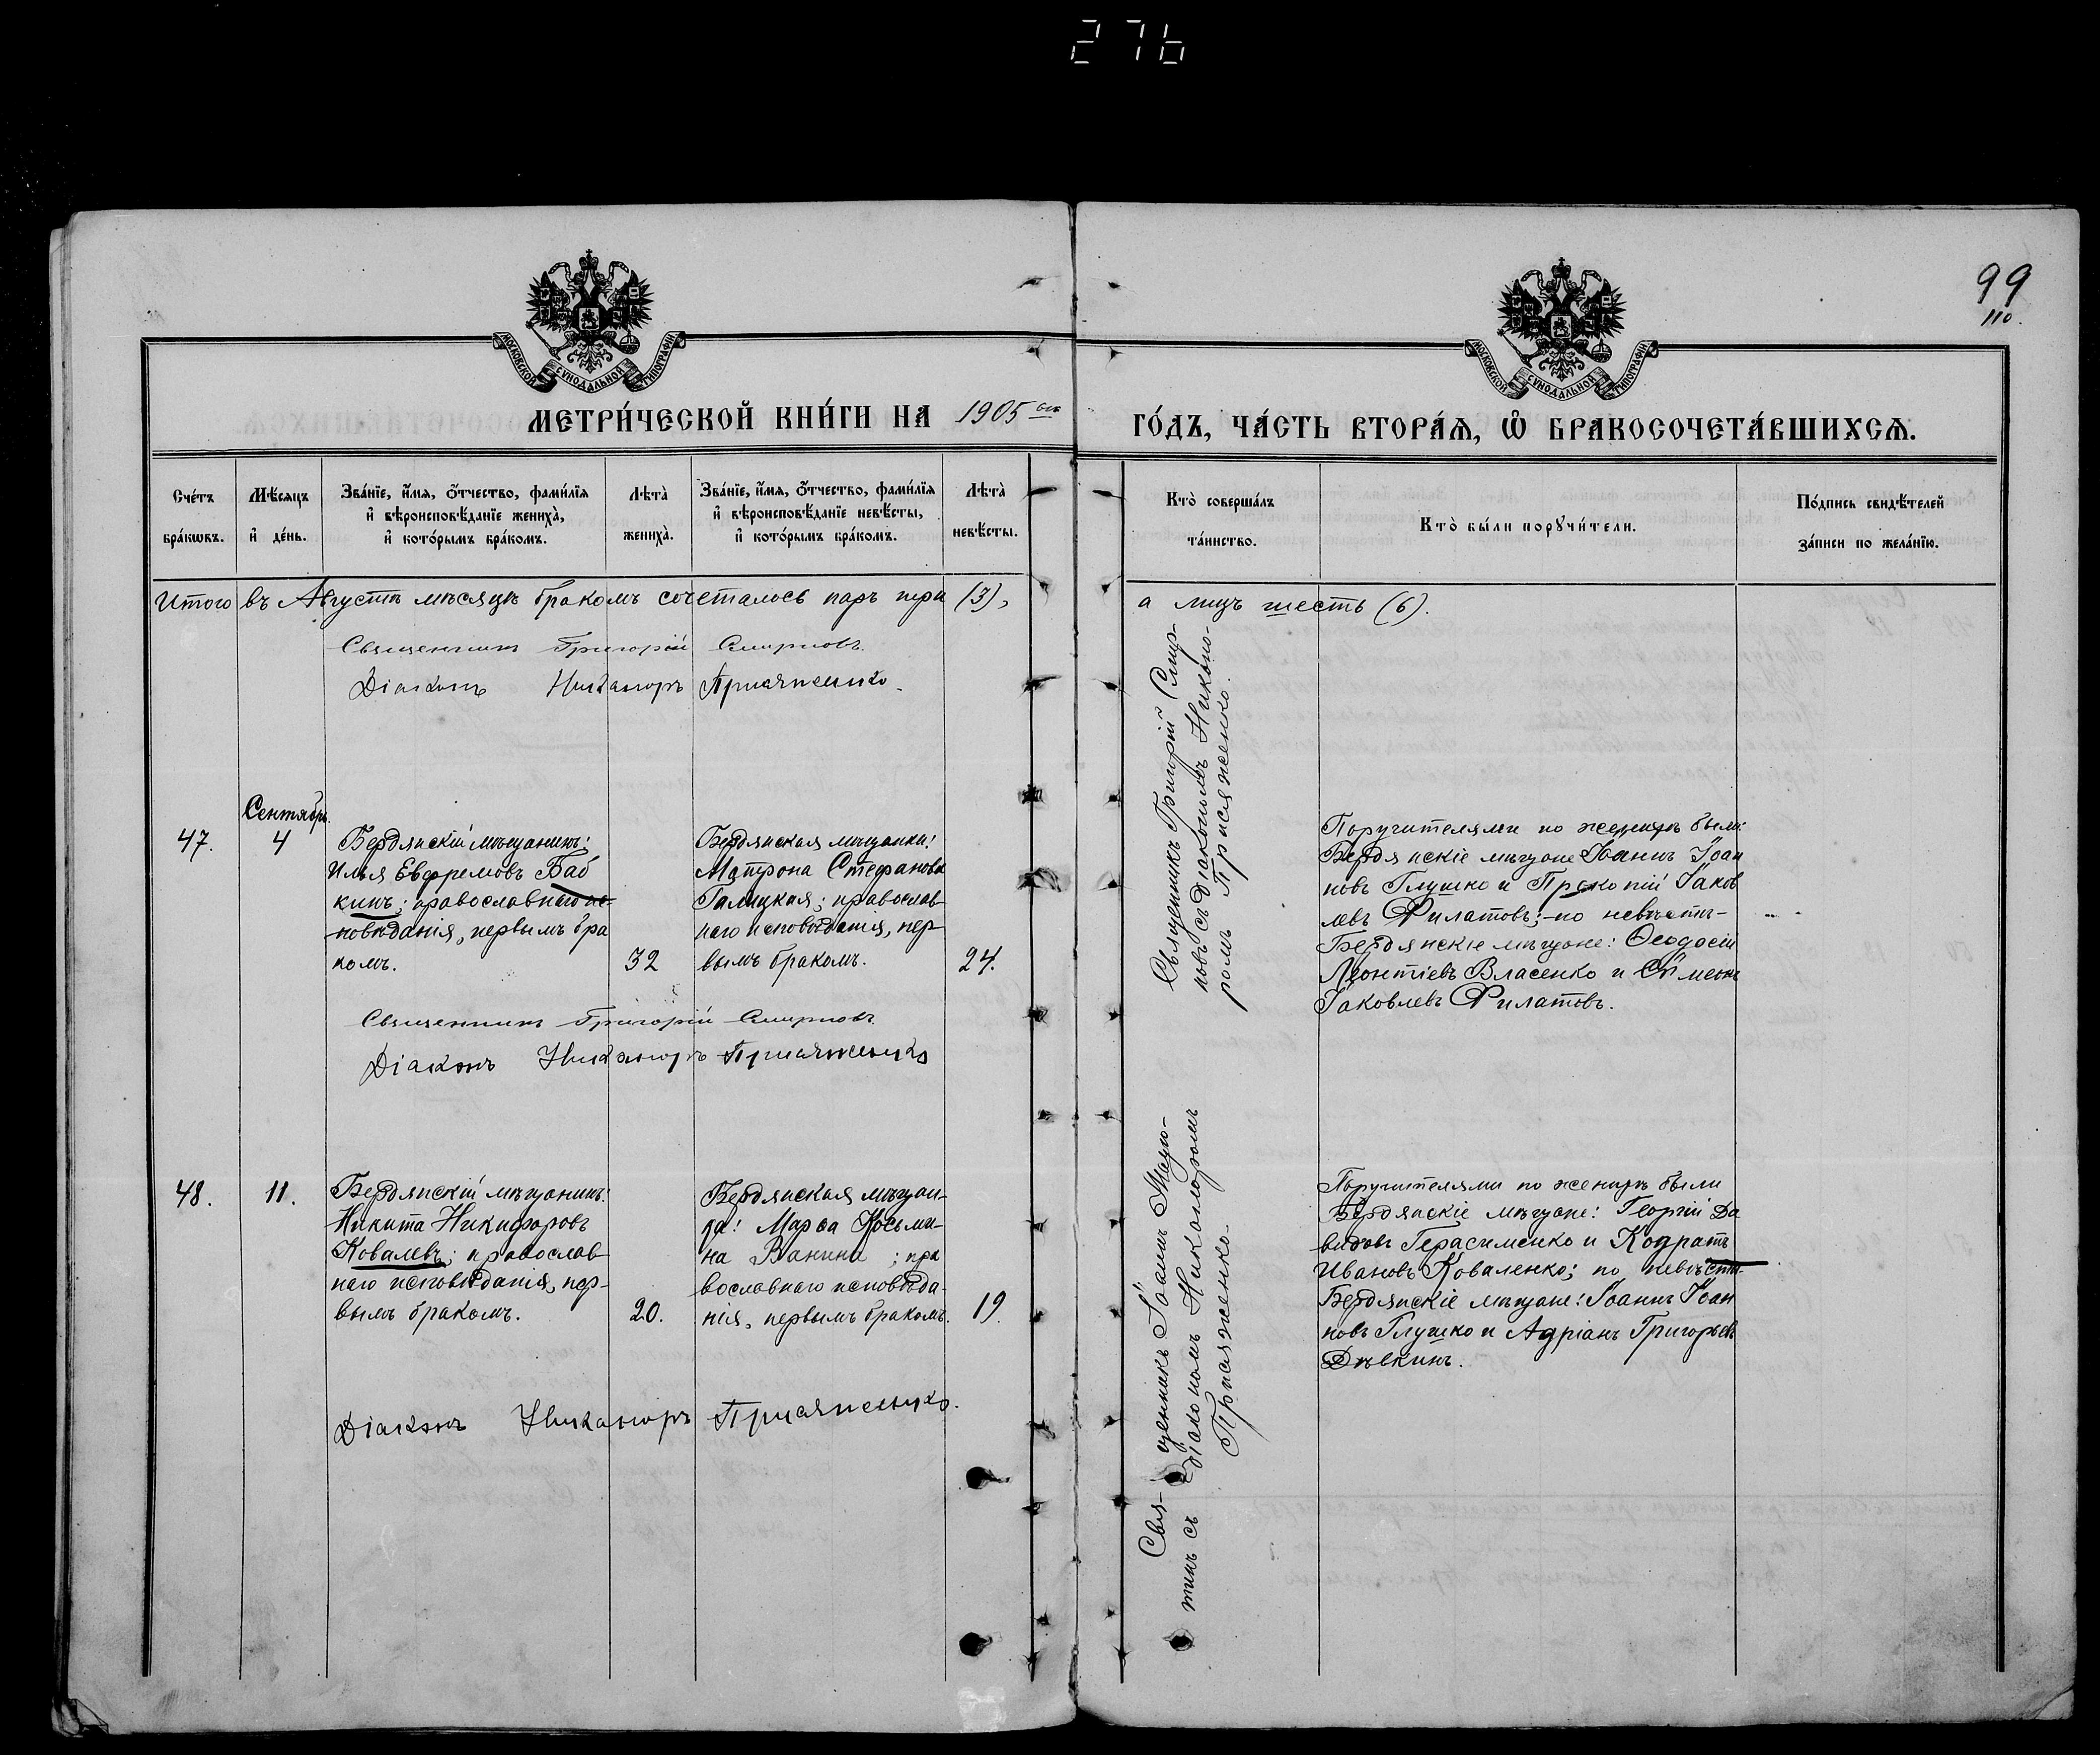 276
99
110.
МОСКОВСКОЙ СѴНОДАЛЬНОЙ ТИПОГРАФІИ
МОСКОВСКОЙ СѴНОДАЛЬНОЙ ТИПОГРАФІИ
МЕТРИ́ЧЕСКОЙ КНИ́ГИ НА 1905 ый
ГО́ДЪ, ЧА́СТЬ ВТОРА́Ѧ, Ѽ БРАКОСОЧЕТА́ВШИХСѦ.
Сче́тъ
бра́кѡвъ.
Мѣ́сяцъ
и҆ де́нь.
Зва́нїе, и҆́мя, ѻ҆́тчество, фами́лїя
и҆ вѣроисповѣ́данїе жениха̀,
и҆ кото́рымъ бра́комъ.
Лѣта̀
жениха̀.
Зва́нїе, и҆́мя, ѻ҆́тчество, фами́лїя
и҆ вѣроисповѣ́данїе невѣ́сты,
и҆ кото́рымъ бра́комъ.
Лѣта̀
невѣ́сты.
Кто̀ соверша́лъ
та́инство.
Кто̀ бы́ли порꙋчи́тели.
По́дпись свидѣ́телей
за́писи по жела́нїю.
Итого въ Августѣ мѣсяцѣ бракомъ сочеталось паръ три (3),
а лицъ шесть (6).
Священникъ Григорій Смирновъ.
Діаконъ Никаноръ Присяженко.
47.
Сентябрь.
4
Бердянскій мѣщанинъ:
Илья Евфремовъ Баб
кинъ; православнаго ис-
повѣданія, первымъ бра
комъ.
32
Бердянская мѣщанка:
Матрона Стефанова
Галицкая; православ-
наго исповѣданія, пер-
вымъ бракомъ.
24.
Священникъ Григорій Смир-
новъ съ Діакономъ Никано-
ромъ Присяженко.
Поручителями по женихѣ были:
Бердянскіе мѣщане Іоаннъ Іоан
новъ Глушко и Прокопій Іаков
левъ Филатовъ;-по невѣстѣ-
Бердянскіе мѣщане: Ѳеодосій
Леонтіевъ Власенко и Сѵмеонъ
Іаковлевъ Филатовъ.
Священникъ Григорій Смирновъ.
Діаконъ Никаноръ Присяженко
48.
11.
Бердянскій мѣщанинъ:
Никита Никифоровъ
Ковалевъ; православ-
наго исповѣданія, пер-
вымъ бракомъ.
20.
Бердянская мѣщан-
ка: Марѳа Косьми-
на Ванина; пра
вославнаго исповѣда-
нія, первымъ бракомъ.
19.
Свя-щенникъ Іоаннъ
тинъ съ Діакономъ Никаноромъ
Присяженко.
Поручителями по женихѣ были
Бердянскіе мѣщане: Георгій Да
видовъ Герасименко и Кодратъ
Ивановъ Коваленко; по невѣстѣ-
Бердянскіе мѣщане: Іоаннъ Іоан
новъ Глушко и Адріанъ Григорьевъ
Дѣвкинъ.
Діаконъ Никаноръ Присяженко.